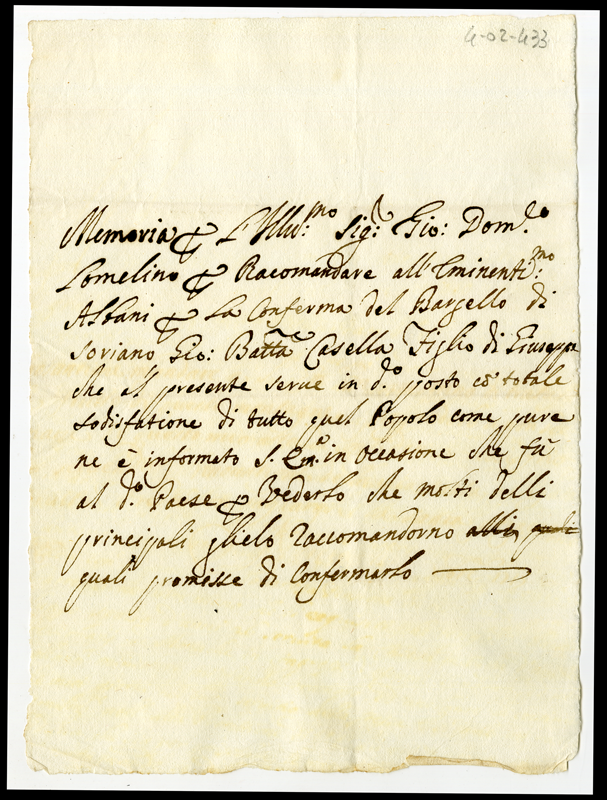 4-02-433
Memoria p L'Illu:mo Sigr: Gio: Dom:co
Lomelino p Racomandare all'Eminenti:mo
Albani p La Conferma del Bargello di
Soriano Gio: Batta Casella Figlio di Giuseppe
che al presente serve in d:o posto cō totale
sodisfatione di tutto quel Popolo come pure
ne è informato S. Em:a in occasione che fù
al d:o Paese p Vederlo che molti delli
principali glielo raccomandorno alli quali
quali promisse di Confermarlo